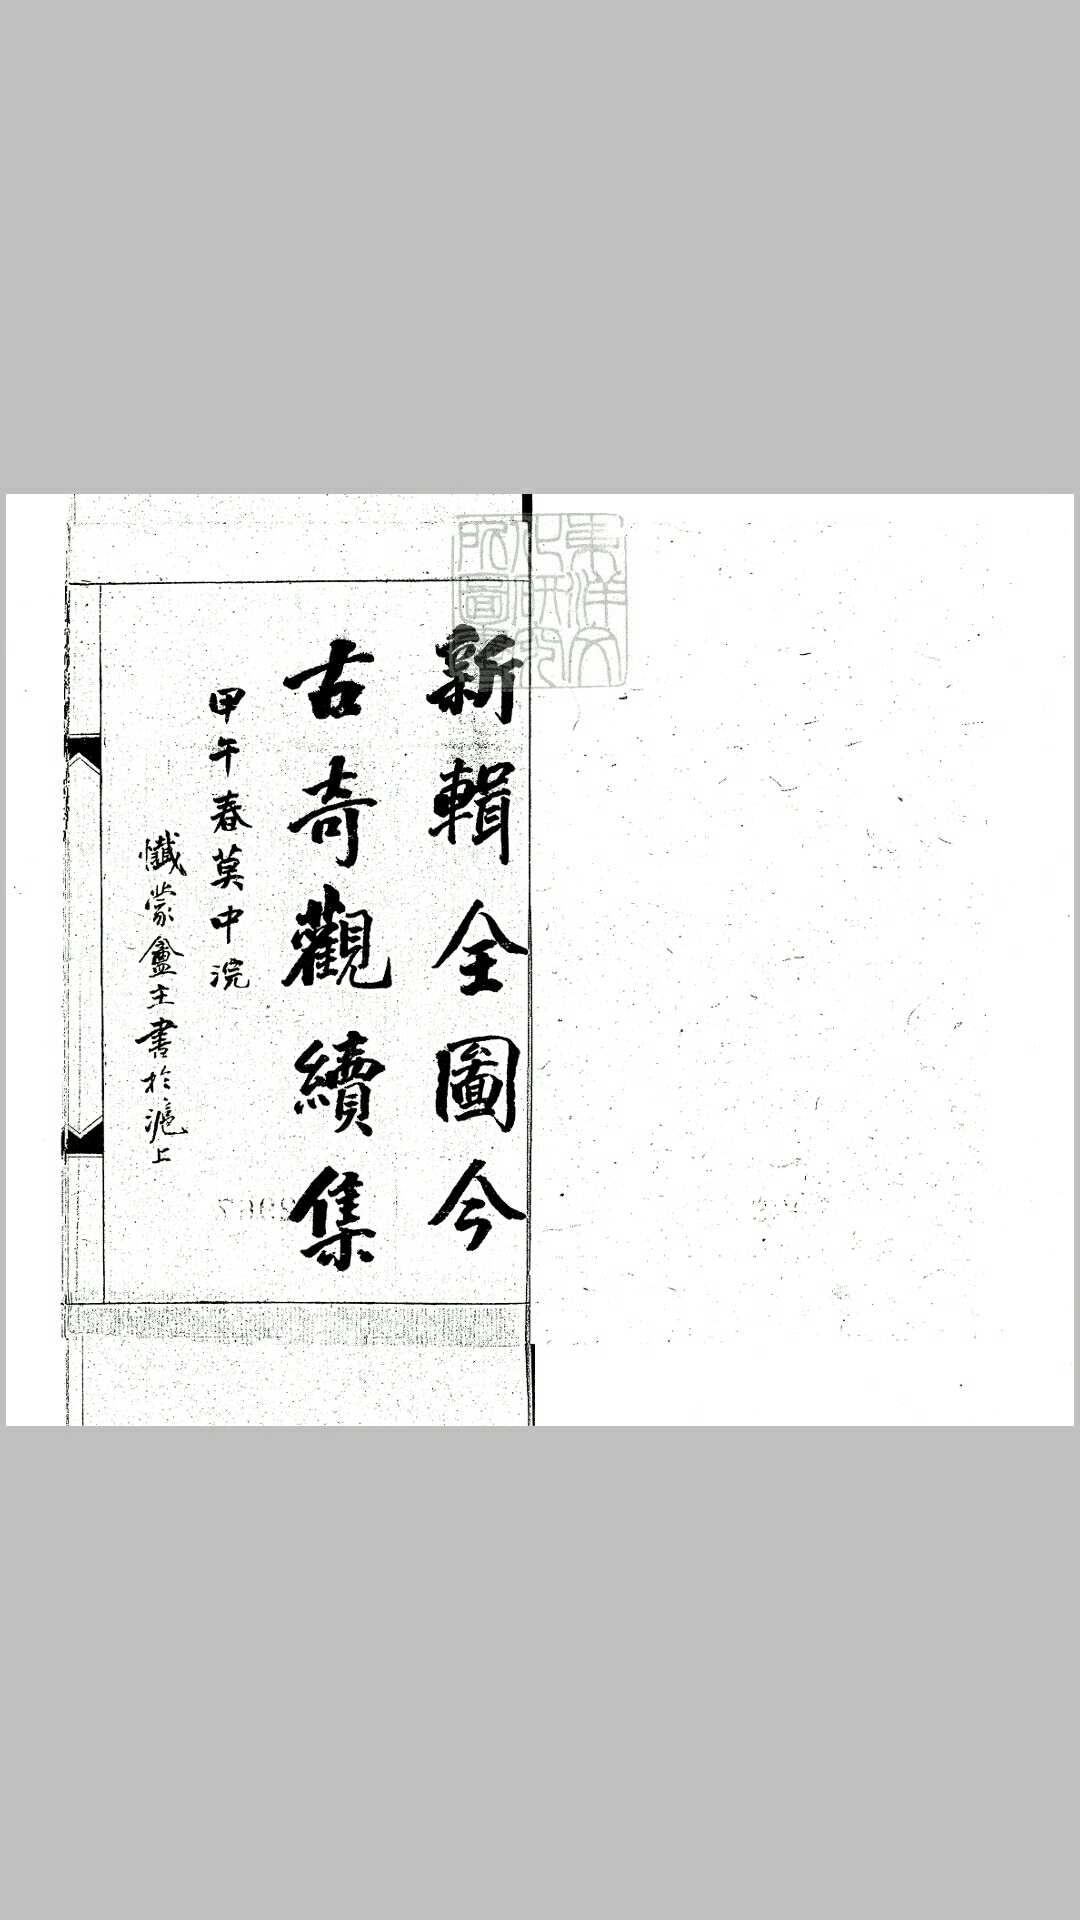 新輯全圖今
古奇觀續集
甲午春莫中浣
懺蒙盦主書於滬上
東洋文
化研究